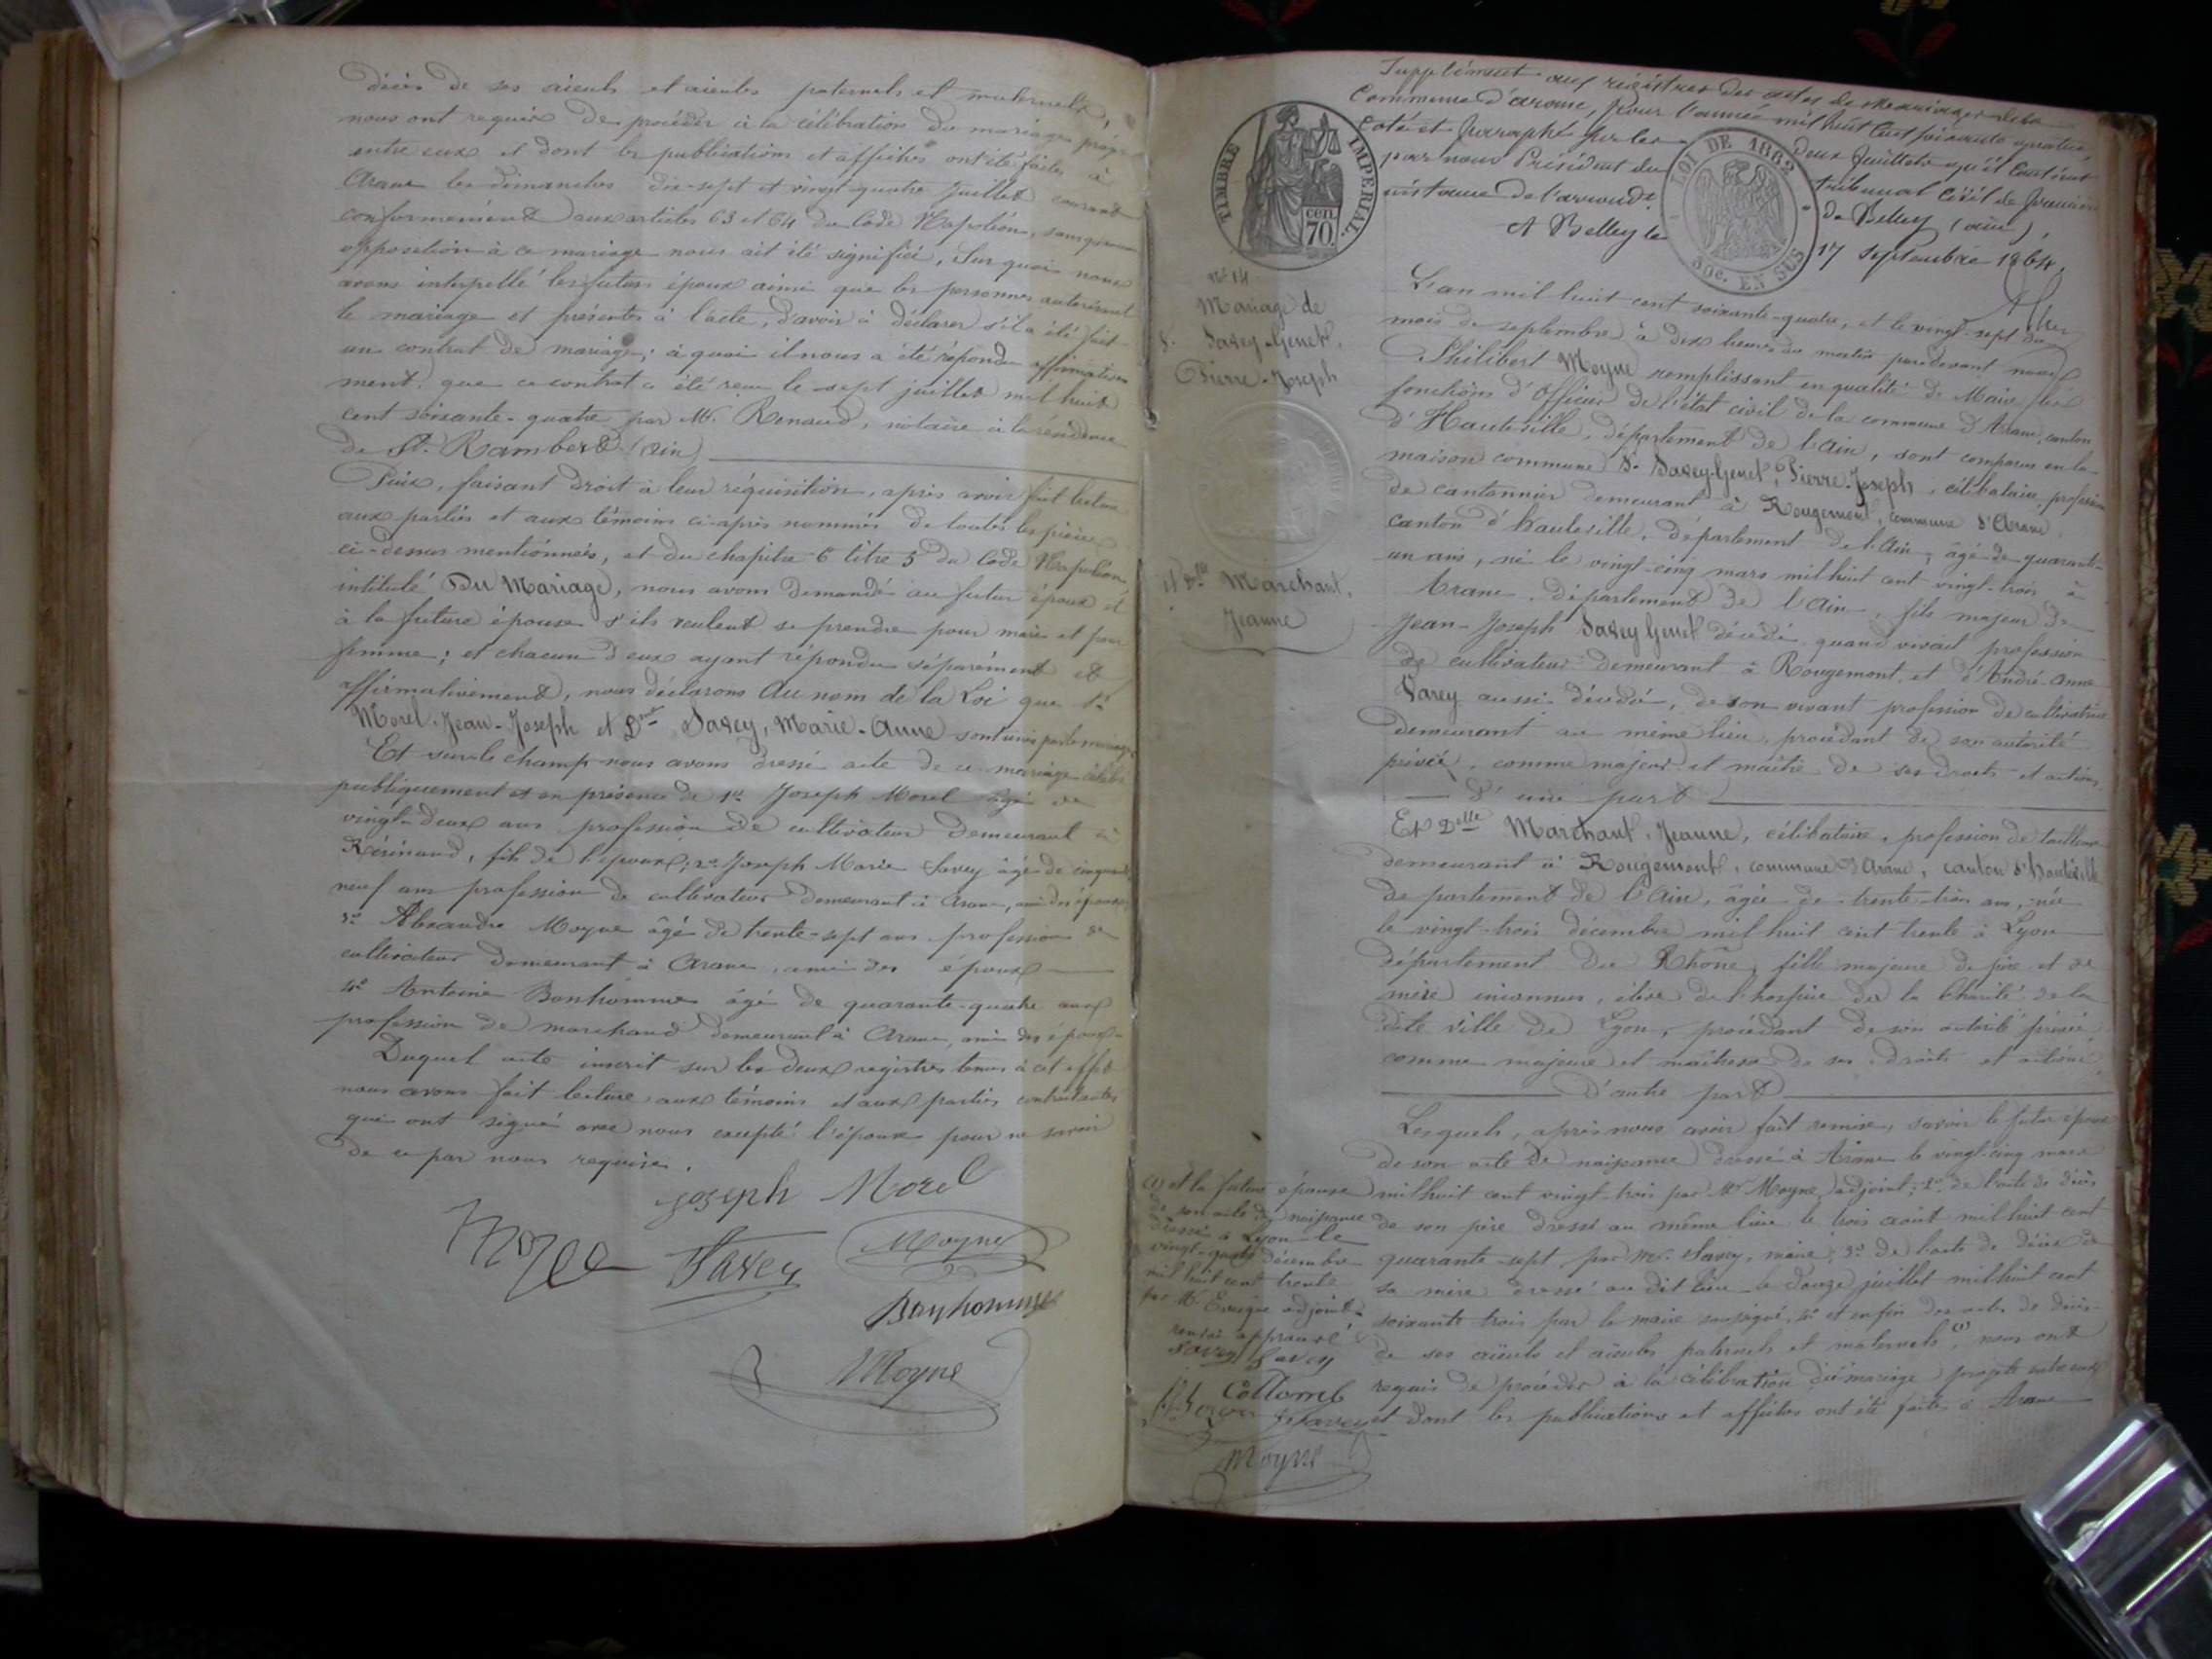 décès de ses aïeuls et aïeules paternels et maternels,
nous ont requis de procéder à la célébration du mariage projeté
entre eux et dont les publications et affiches ont été faites à
Arane les dimanches dix-sept et vingt-quatre juillet courant
conformément aux articles 63 et 64 du Code Napoléon, sans qu'aucune
opposition à ce mariage nous ait été signifiée, Sur quoi nous
avons interpellé les futurs époux ainsi que les personnes autorisant
le mariage et présentes à l'acte, d'avoir à déclarer s'il a été fait
un contrat de mariage; à quoi il nous a été répondu affirmative
ment, que ce contrat a été reçu le sept juillet mil huit
cent soixante-quatre par Mr. Renaud, notaire à la résidence
de St. Rambert (Ain)
Puis, faisant droit à leur réquisition, après avoir fait lecture
aux parties et aux témoins ci-après nommés de toutes les pièces
ci-dessus mentionnées, et du chapitre 6 titre 5 du Code Napoléon
intitulé Du Mariage, nous avons demandé au futur époux et
à la future épouse s'ils veulent se prendre pour mari et pour
femme; et chacun d'eux ayant répondu séparément et
affirmativement, nous déclarons Au nom de la Loi que Sr
Morel Jean-Joseph et Dme Savey, Marie-Anne sont unis par le mariage
Et sur le champ nous avons dressé acte de ce mariage célébré
publiquement et en présence de 1º Joseph Morel âgé de
vingt-deux ans profession de cultivateur demeurant à
fils de l'époux; 2º Joseph Marie Savey âgé de cinquante
neuf ans profession de cultivateur demeurant à Arane, ami des époux
3º Alexandre Moyne âgé de trente-sept ans profession de
cultivateur demeurant à Arane, ami des époux
4º Antoine Bonhomme âgé de quarante-quatre ans
profession de marchand demeurant à Arane, ami des époux
Duquel acte inscrit sur les deux registres tenus à cet effet
nous avons fait lecture aux témoins et aux parties contractantes
qui ont signé avec nous excepté l'épouse pour ne savoir
de ce par nous requise.
Joseph Morel
Savey Moyne
Bonhomme
Moyne
Supplément aux registres des actes de Mariages de la
Commune d'arane, pour l'année mil huit cent soixante quatre,
Coté et paraphé sur les deux feuillets qu'il contient
par nous Président du tribunal Civil de première
instance de l'arrondt de Belley (ain),
A Belley le 17 septembre 1864.
TIMBRE IMPERIAL
cen. 70.
LOI DE 1862
50c. EN SUS
Nº 14
Mariage de
S. Savey-Genet,
Pierre-Joseph
et Dlle Marchant,
Jeanne
L'an mil huit cent soixante-quatre, et le vingt-sept du
mois de septembre à dix heures du matin pardevant nous
Philibert Moyne remplissant en qualité de Maire les
fonctions d'officier de l'état civil de la commune d'Arane, canton
d'Hauteville, département de l'Ain, sont comparus en la
maison commune Sr Savey-Genet, Pierre-Joseph, célibataire, profession
de cantonnier demeurant à Rougemont, commune d'Arane,
canton d'Hauteville, département de l'Ain, âgé de quarante-
un ans, né le vingt-cinq mars mil huit cent vingt-trois à
Arane, département de l'Ain, fils majeur de
Jean-Joseph Savey Genet décédé, quand vivait profession
de cultivateur demeurant à Rougemont, et d'André-Anne
Varey aussi décédée, de son vivant profession de cultivatrice
demeurant au même lieu, procédant de son autorité
privée, comme majeur et maître de ses droits et actions,
D'une part
Et Dlle Marchant, Jeanne, célibataire, profession de tailleuse
demeurant à Rougemont, commune d'Arane, canton d'Hauteville
département de l'Ain, âgée de trente-trois ans, née
le vingt-trois décembre mil huit cent trente à Lyon
département du Rhône, fille majeure de père et de
mère inconnus, élève de l'hospice de la Charité de la
dite ville de Lyon, procédant de son autorité privée,
comme majeure et maîtresse de ses droits et actions
D'autre part
Lesquels, après nous avoir fait remise, savoir le futur époux
de son acte de naissance dressé à Arane le vingt-cinq mars
mil huit cent vingt-trois par Mr Moyne, adjoint; 2º de l'acte de décès
de son père dressé au même lieu le trois août mil huit cent
quarante-sept par Mr. Savey, maire; 3º de l'acte de décès de
sa mère dressé au dit lieu le douze juillet mil huit cent
soixante trois par le maire soussigné, 4º et enfin des actes de décès
de ses aïeuls et aïeules paternels et maternels (1), nous ont
requis de procéder à la célébration du mariage projeté entre eux
et dont les publications et affiches ont été faites à Arane
(1) et la future épouse
de son acte de naissance
dressé à Lyon le
vingt-quatre décembre
mil huit cent trente
par Mr. adjoint.
renvoi approuvé
Savey Savey
Collomb
Savey
Moyne